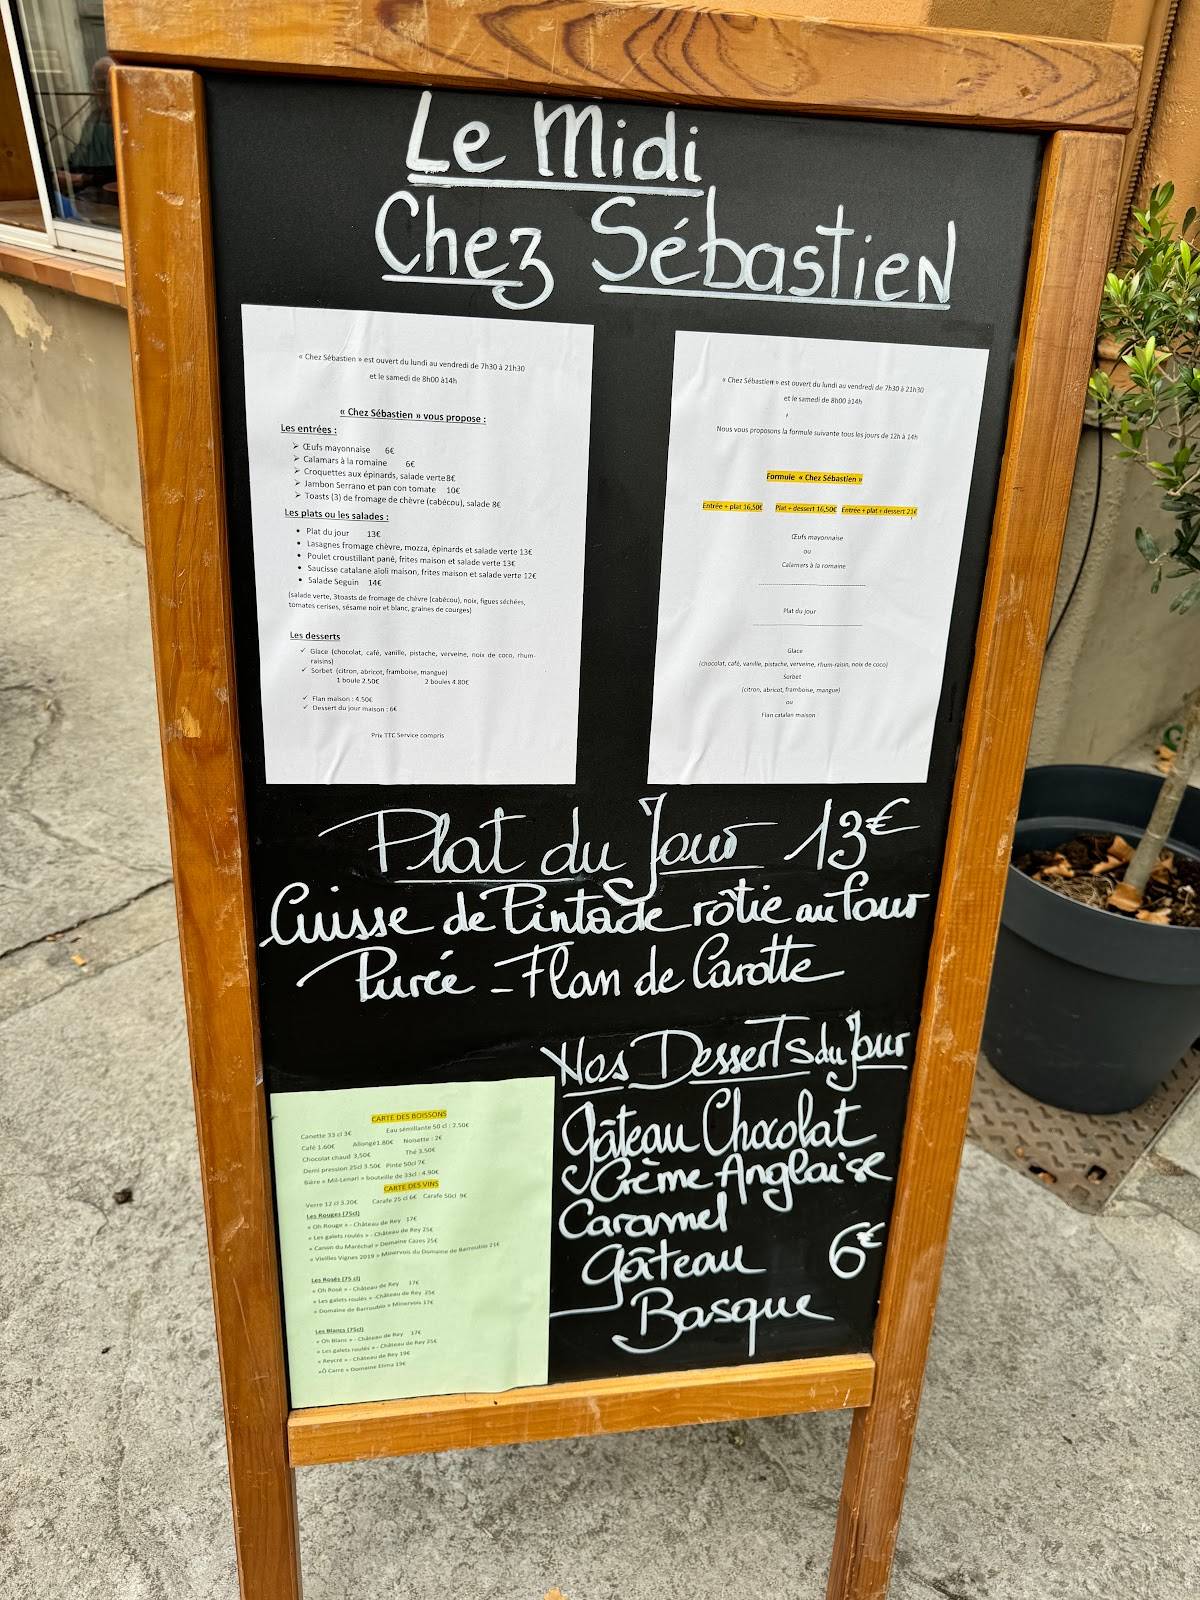 Le Midi
Chez Sébastien
« Chez Sébastien » est ouvert du lundi au vendredi de 7h30 à 21h30
et le samedi de 8h00 à14h
« Chez Sébastien » vous propose :
Les entrées :
➢ Œufs mayonnaise 6€
➢ Calamars à la romaine 6€
➢ Croquettes aux épinards, salade verte8€
➢ Jambon Serrano et pan con tomate 10€
➢ Toasts (3) de fromage de chèvre (cabécou), salade 8€
Les plats ou les salades :
• Plat du jour 13€
• Lasagnes fromage chèvre, mozza, épinards et salade verte 13€
• Poulet croustillant pané, frites maison et salade verte 13€
• Saucisse catalane aïoli maison, frites maison et salade verte 12€
• Salade Seguin 14€
(salade verte, 3toasts de fromage de chèvre (cabécou), noix, figues séchées,
tomates cerises, sésame noir et blanc, graines de courges)
Les desserts
✓ Glace (chocolat, café, vanille, pistache, verveine, noix de coco, rhum-
raisins)
✓ Sorbet (citron, abricot, framboise, mangue)
1 boule 2.50€ 2 boules 4.80€
✓ Flan maison : 4.50€
✓ Dessert du jour maison : 6€
Prix TTC Service compris
« Chez Sébastien » est ouvert du lundi au vendredi de 7h30 à 21h30
et le samedi de 8h00 à14h
Nous vous proposons la formule suivante tous les jours de 12h à 14h
Formule « Chez Sébastien »
Entrée + plat 16,50€ Plat + dessert 16,50€ Entrée + plat + dessert 21€
Œufs mayonnaise
ou
Calamars à la romaine
Plat du jour
Glace
(chocolat, café, vanille, pistache, verveine, rhum-raisin, noix de coco)
Sorbet
(citron, abricot, framboise, mangue)
ou
Flan catalan maison
Plat du Jour 13€
Cuisse de Pintade rôtie au four
Purée - Flan de Carotte
Nos Desserts du Jour
Gâteau Chocolat
Crème Anglaise
Caramel
Gâteau 6€
Basque
CARTE DES BOISSONS
Canette 33 cl 3€ Eau sémillante 50 cl : 2.50€
Café 1.60€ Allongé1.80€ Noisette : 2€
Chocolat chaud 3,50€ Thé 3.50€
Demi pression 25cl 3.50€ Pinte 50cl 7€
Bière « Mil-Lenari » bouteille de 33cl : 4.90€
CARTE DES VINS
Verre 12 cl 3.20€ Carafe 25 cl 6€ Carafe 50cl 9€
Les Rouges (75cl)
« Oh Rouge » - Château de Rey 17€
« Les galets roulés » - Château de Rey 25€
« Canon du Maréchal » Domaine Cazes 25€
« Vieilles Vignes 2019 » Minervois du Domaine de Barroubio 21€
Les Rosés (75 cl)
« Oh Rosé » - Château de Rey 17€
« Les galets roulés » -Château de Rey 25€
« Domaine de Barroubio » Minervois 17€
Les Blancs (75cl)
« Oh Blanc » - Château de Rey 17€
« Les galets roulés » - Château de Rey 25€
« Reycre » - Château de Rey 19€
«Ô Carré » Domaine Elima 19€